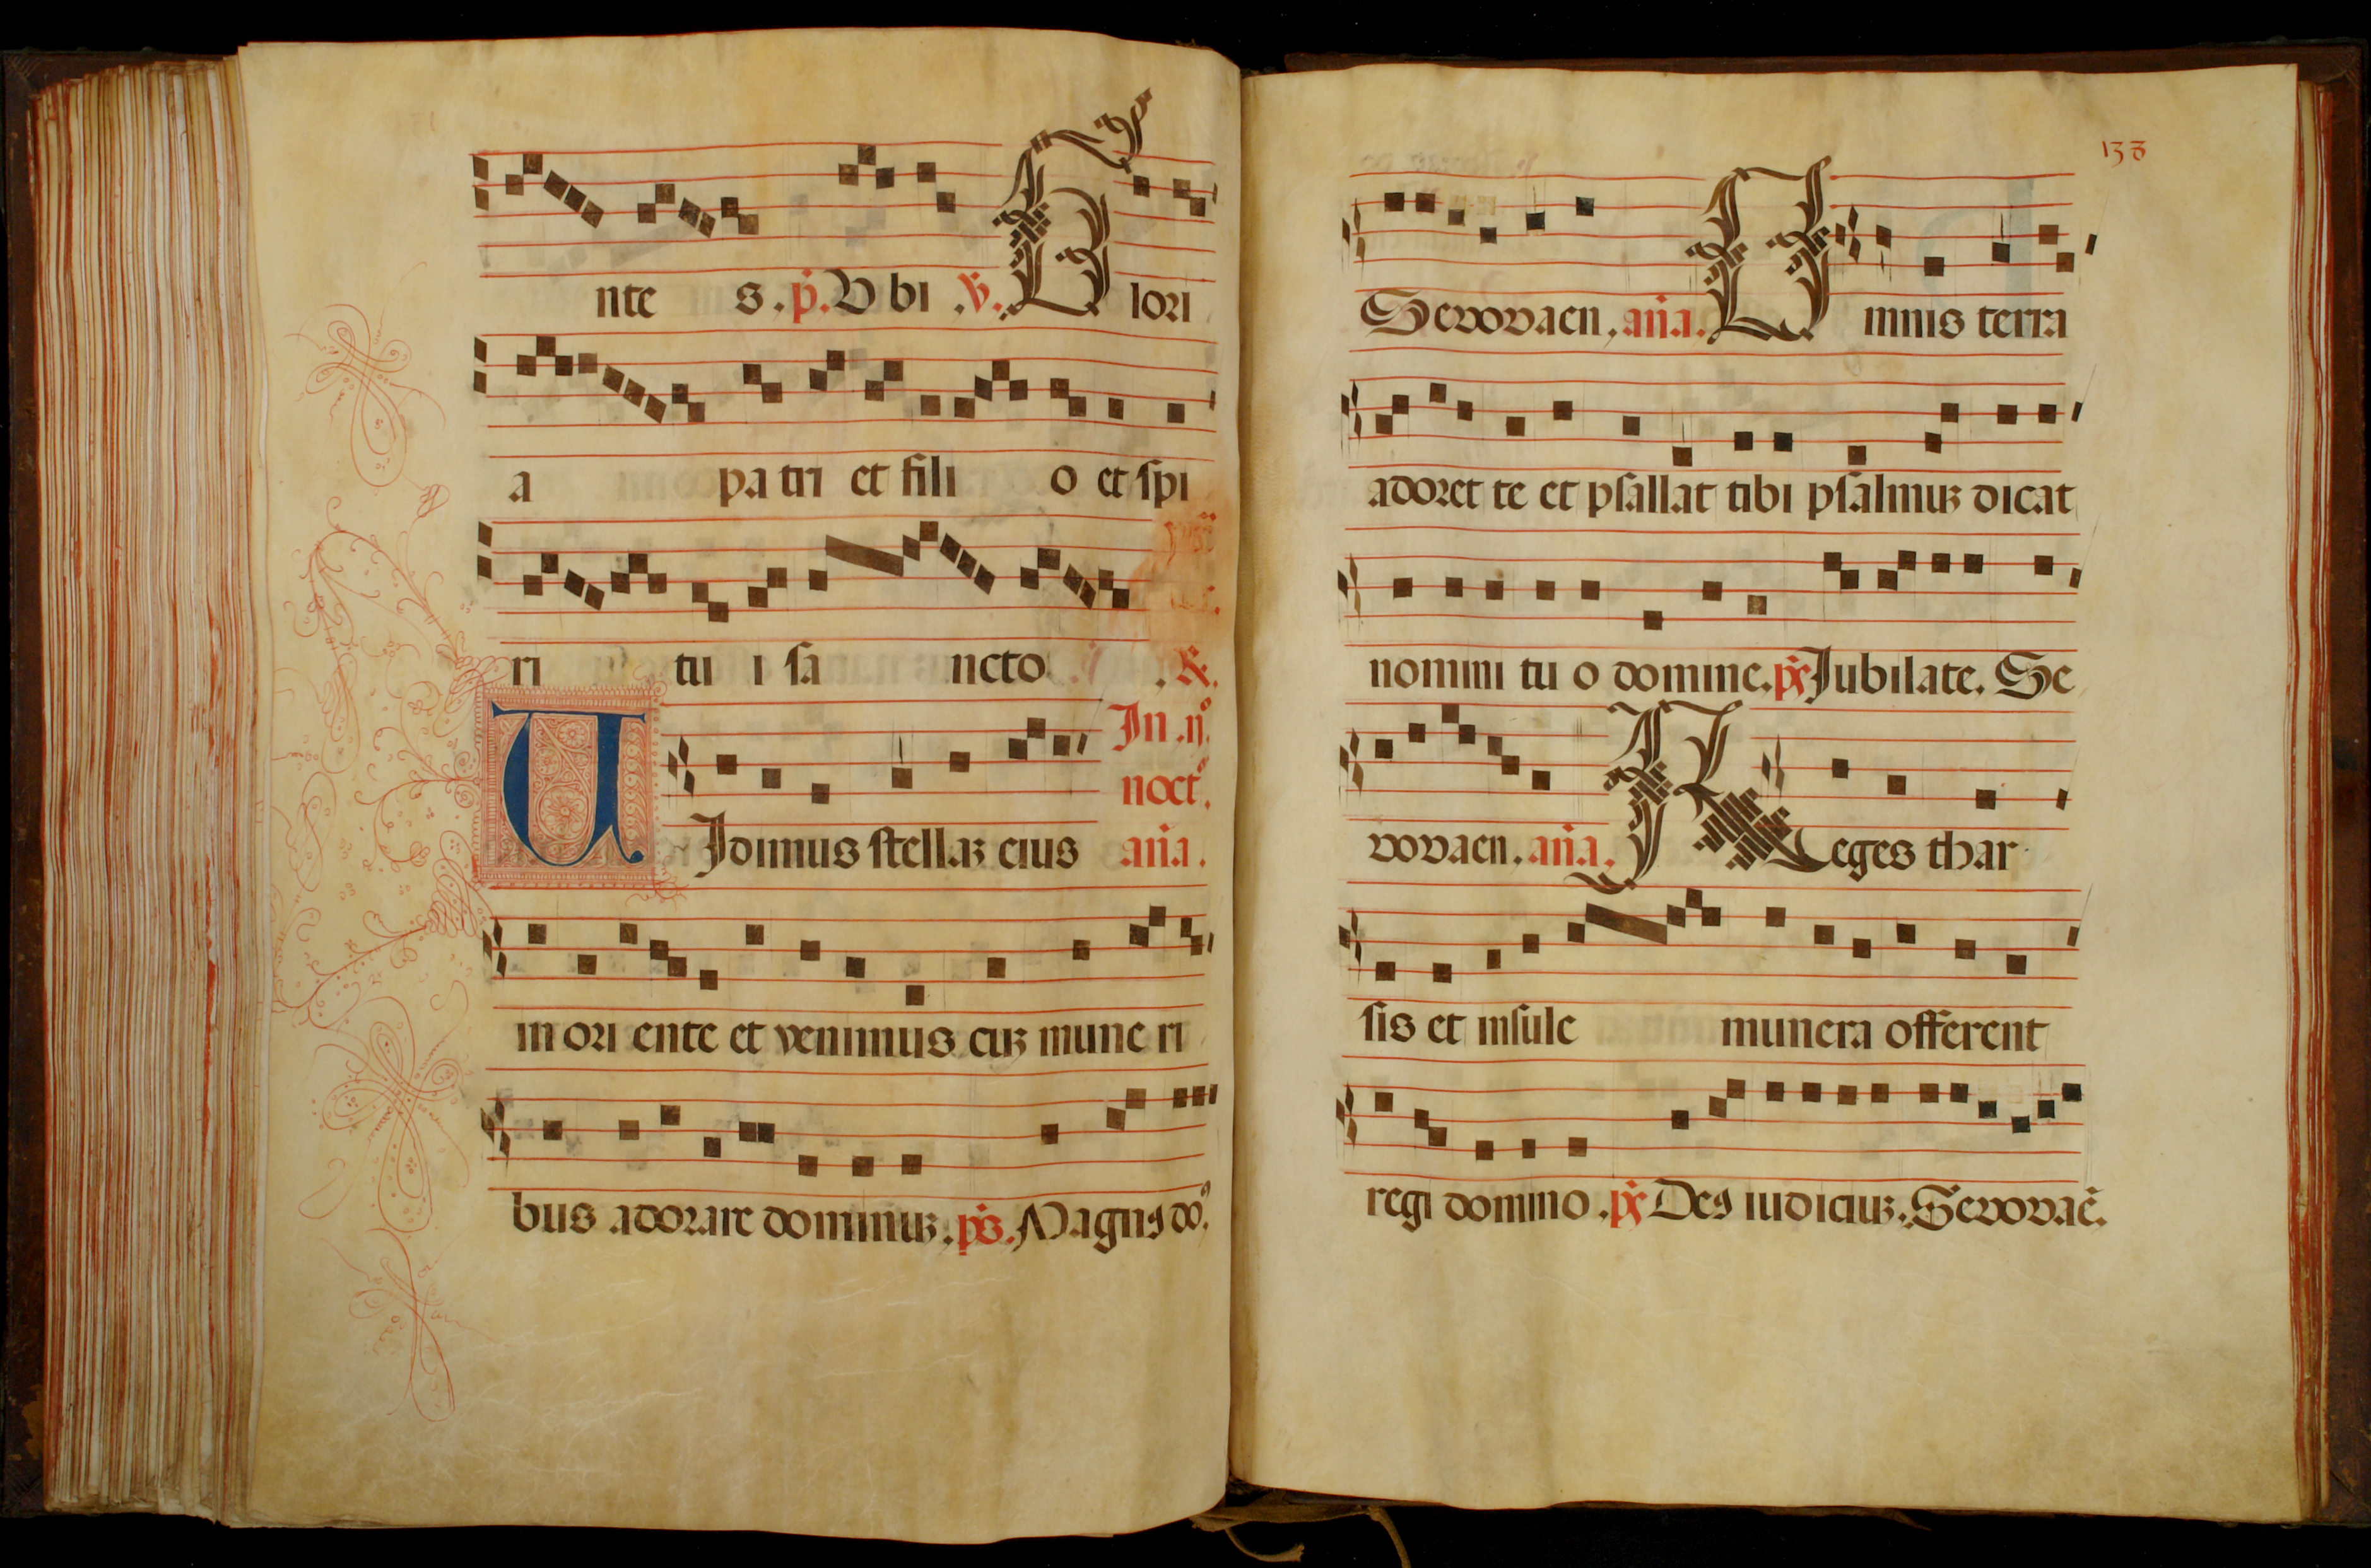 nte s. p̄. Vbi .℣. Glori
a patri et fili o et spi
ri tu i sa ncto . ℟.
In .ij.º
noctº.
UIdimus stellaꝫ eius aña.
in ori ente et venimus cuꝫ mune ri
bus adorare dominuꝫ. p̄s. Magnꝰ dō.
138
Sevovaen, aña. Omnis terra
adoret te et psallat tibi psalmuꝫ dicat
nomini tu o domine. p̄s Jubilate. Se
vovaen. aña. Reges thar
sis et insule munera offerent
regi domino. p̄s Deꝰ iudiciuꝫ. Sevovaē.